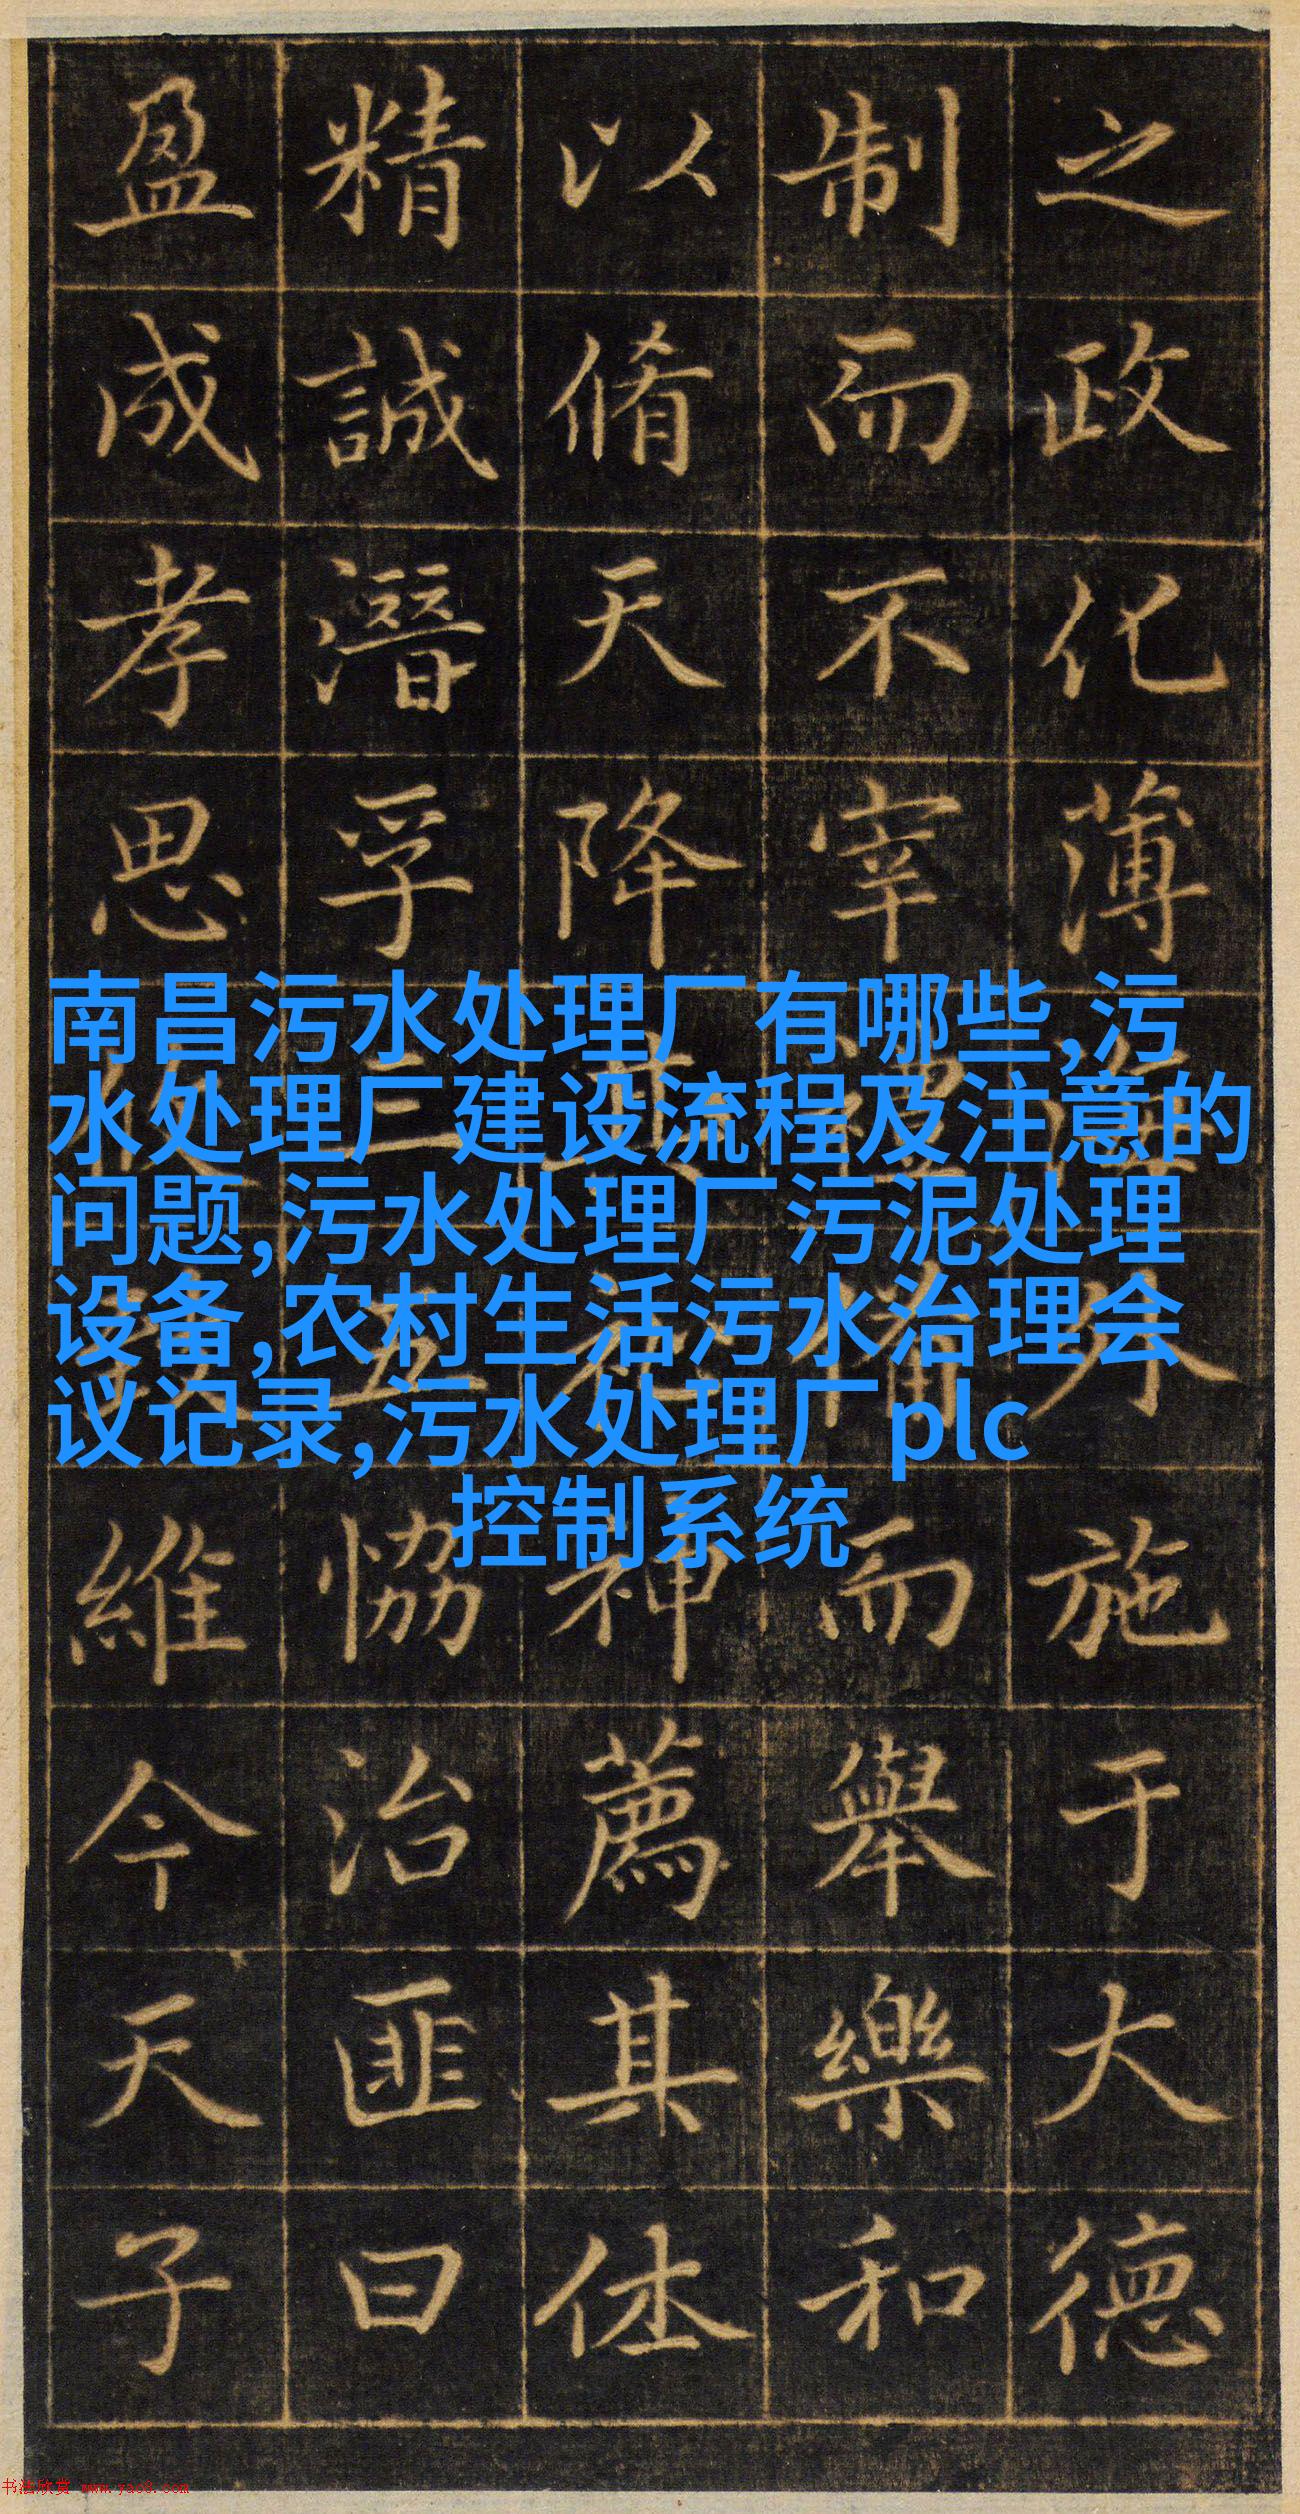 南昌污水处理厂有哪些,污
水处理厂建设流程及注意的
问题,污水处理厂污泥处理
设备,农村生活污水治理会
议记录,污水处理厂plc
控制系统
之政化薄外施于大德
制而不宰備而舉樂和
以脩天降神薦其体
精誠潛孚三五恊治匪曰
盈成孝思維今天子
书法欣赏 www.yac8.com